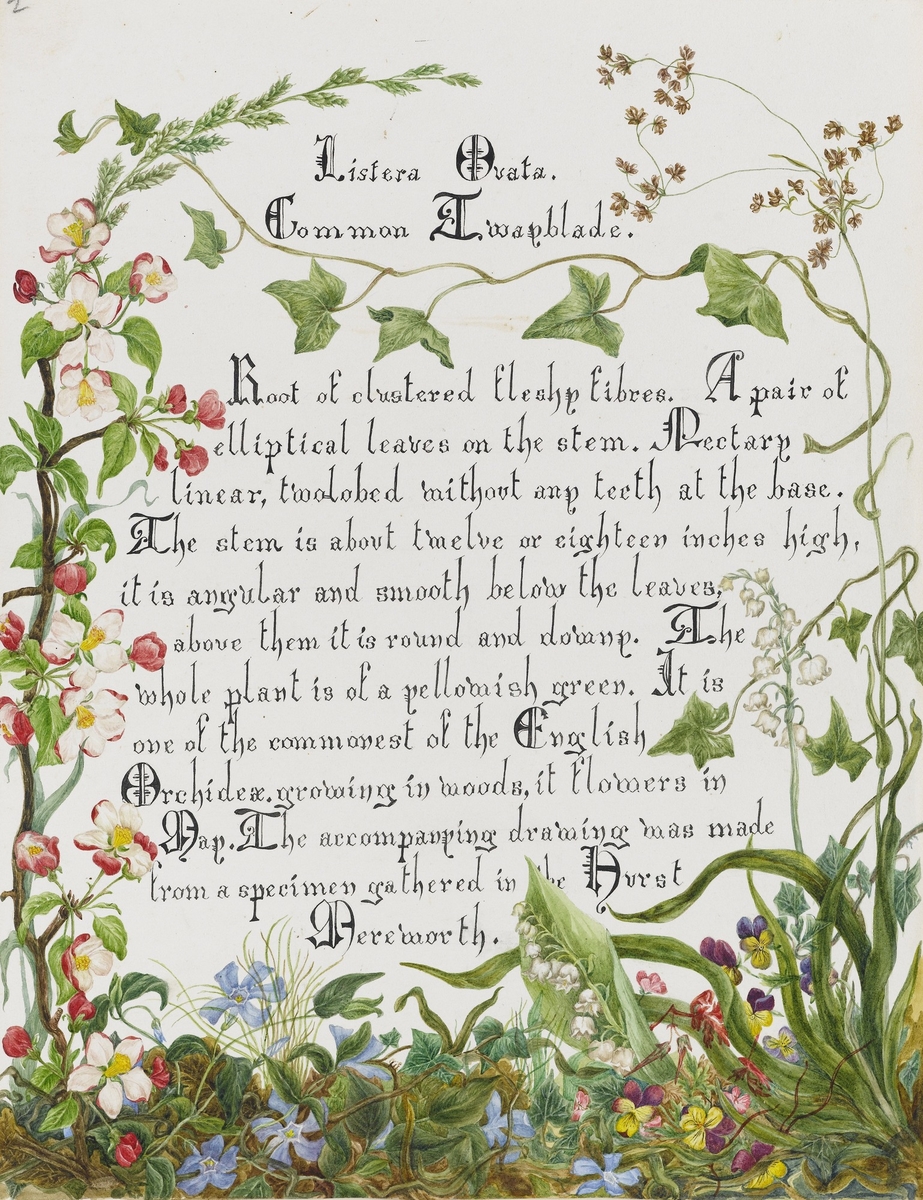 2
Listera Ovata.
Common Twayblade.
Root of clustered fleshy fibres. A pair of
elliptical leaves on the stem. Nectary
linear, twolobed without any teeth at the base.
The stem is about twelve or eighteen inches high,
it is angular and smooth below the leaves,
above them it is round and downy. The
whole plant is of a yellowish green. It is
one of the commonest of the English
Orchideæ. growing in woods, it flowers in
May. The accompanying drawing was made
from a specimen gathered in the Hurst
Mereworth.